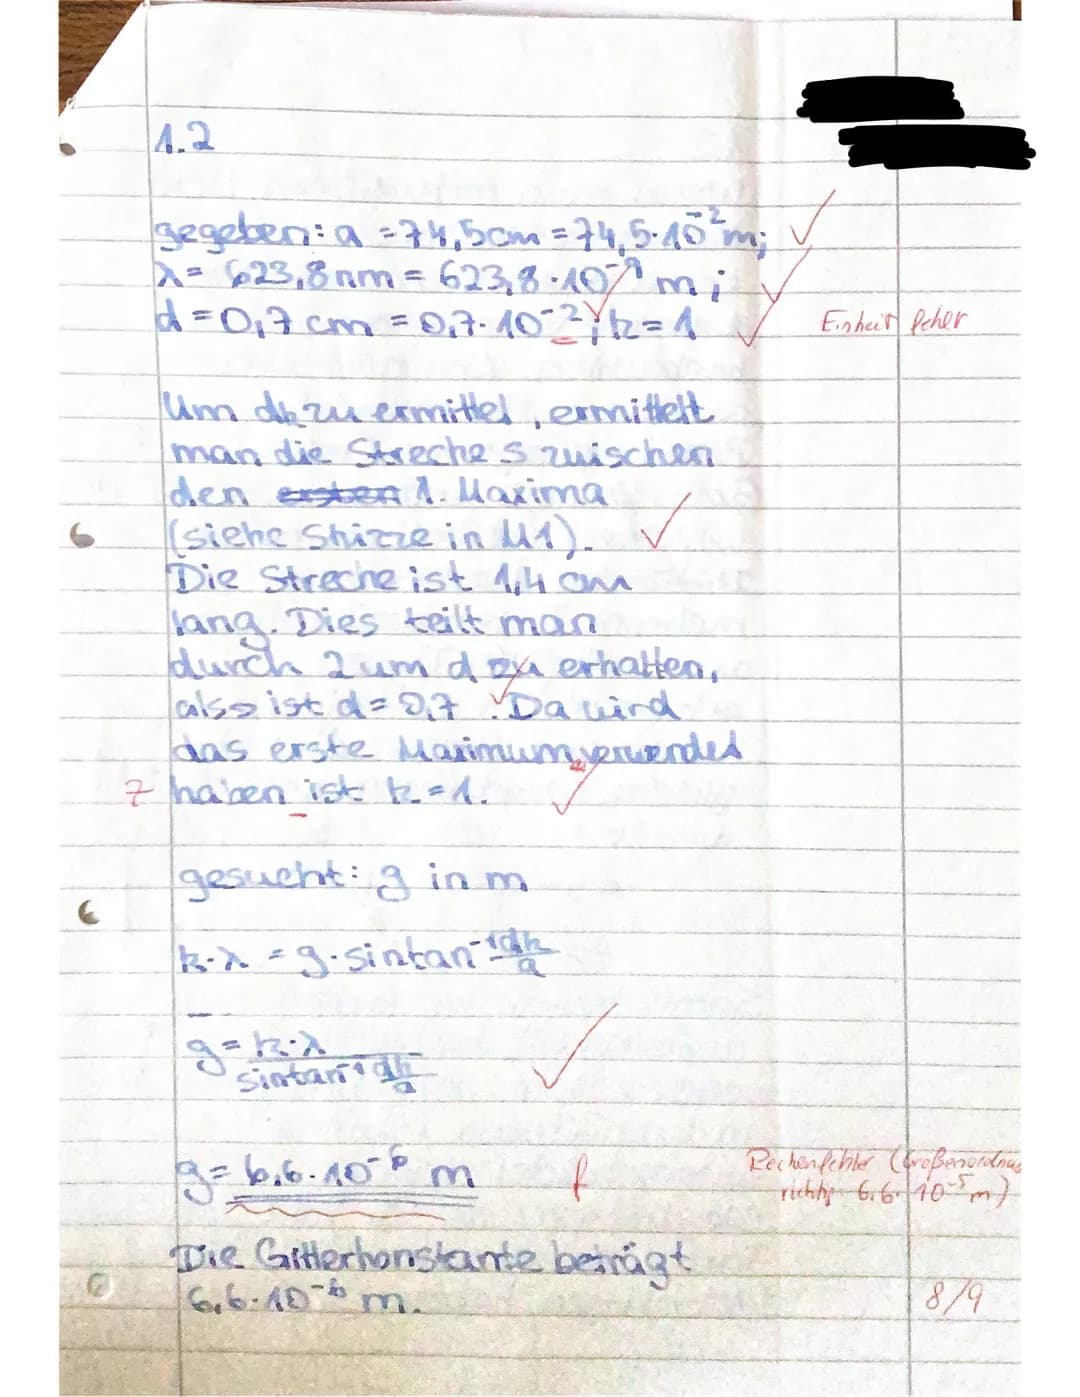 1.2
gegeben: a = 74,5cm = 74,5·10⁻²m;
λ = 623,8nm = 623,8·10⁻⁹ m;
d = 0,7 cm = 0,7·10⁻²; k = 1 Einheit fehler
Um dk zu ermittel, ermittelt
man die Strecke s zwischen
den ersten 1. Maxima
(siehe Skizze in M1).
Die Strecke ist 1,4 cm
lang. Dies teilt man
durch 2 um d zu erhalten,
also ist d = 0,7. Da wird
das erste Maximum verwendet
7 haben ist k = 1.
gesucht: g in m
k·λ = g·sintan⁻¹ dk/a
g = k·λ / sintan⁻¹ dk/a
g = 6,6·10⁻⁶ m f Rechenfehler (Großenordnug
richtig 6,6·10⁻⁵ m)
Die Gitterkonstante beträgt
6,6·10⁻⁶ m. 8/9